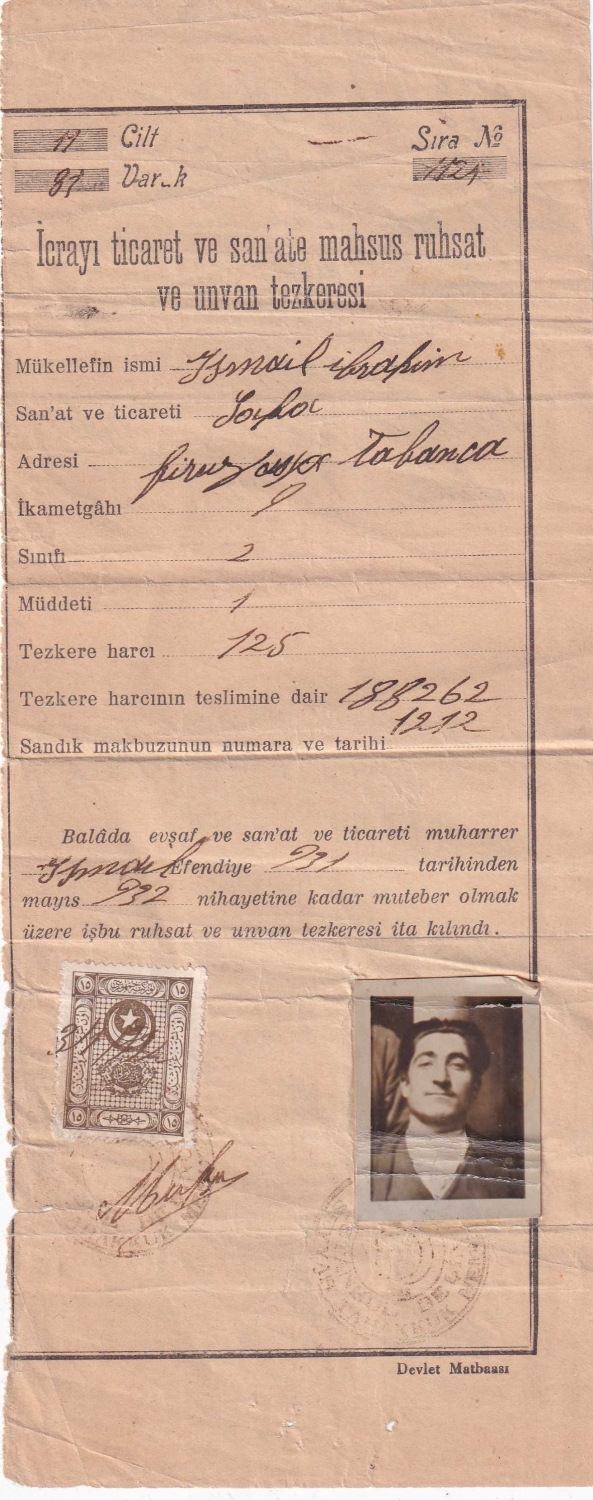 Cilt
Sıra №
Varak
İcrayı ticaret ve san'ate mahsus ruhsat
ve unvan tezkeresi
Mükellefin ismi İsmail ibrahim
San'at ve ticareti
Adresi firuzağa Tabanca
İkametgâhı
Sınıfı 2
Müddeti 1
Tezkere harcı 125
Tezkere harcının teslimine dair 188262
1212
Sandık makbuzunun numara ve tarihi
Balâda evşaf ve san'at ve ticareti muharrer
İsmail Efendiye 931 tarihinden
mayıs 932 nihayetine kadar muteber olmak
üzere işbu ruhsat ve unvan tezkeresi ita kılındı.
١٥ ١٥
١٥ ١٥
Devlet Matbaası